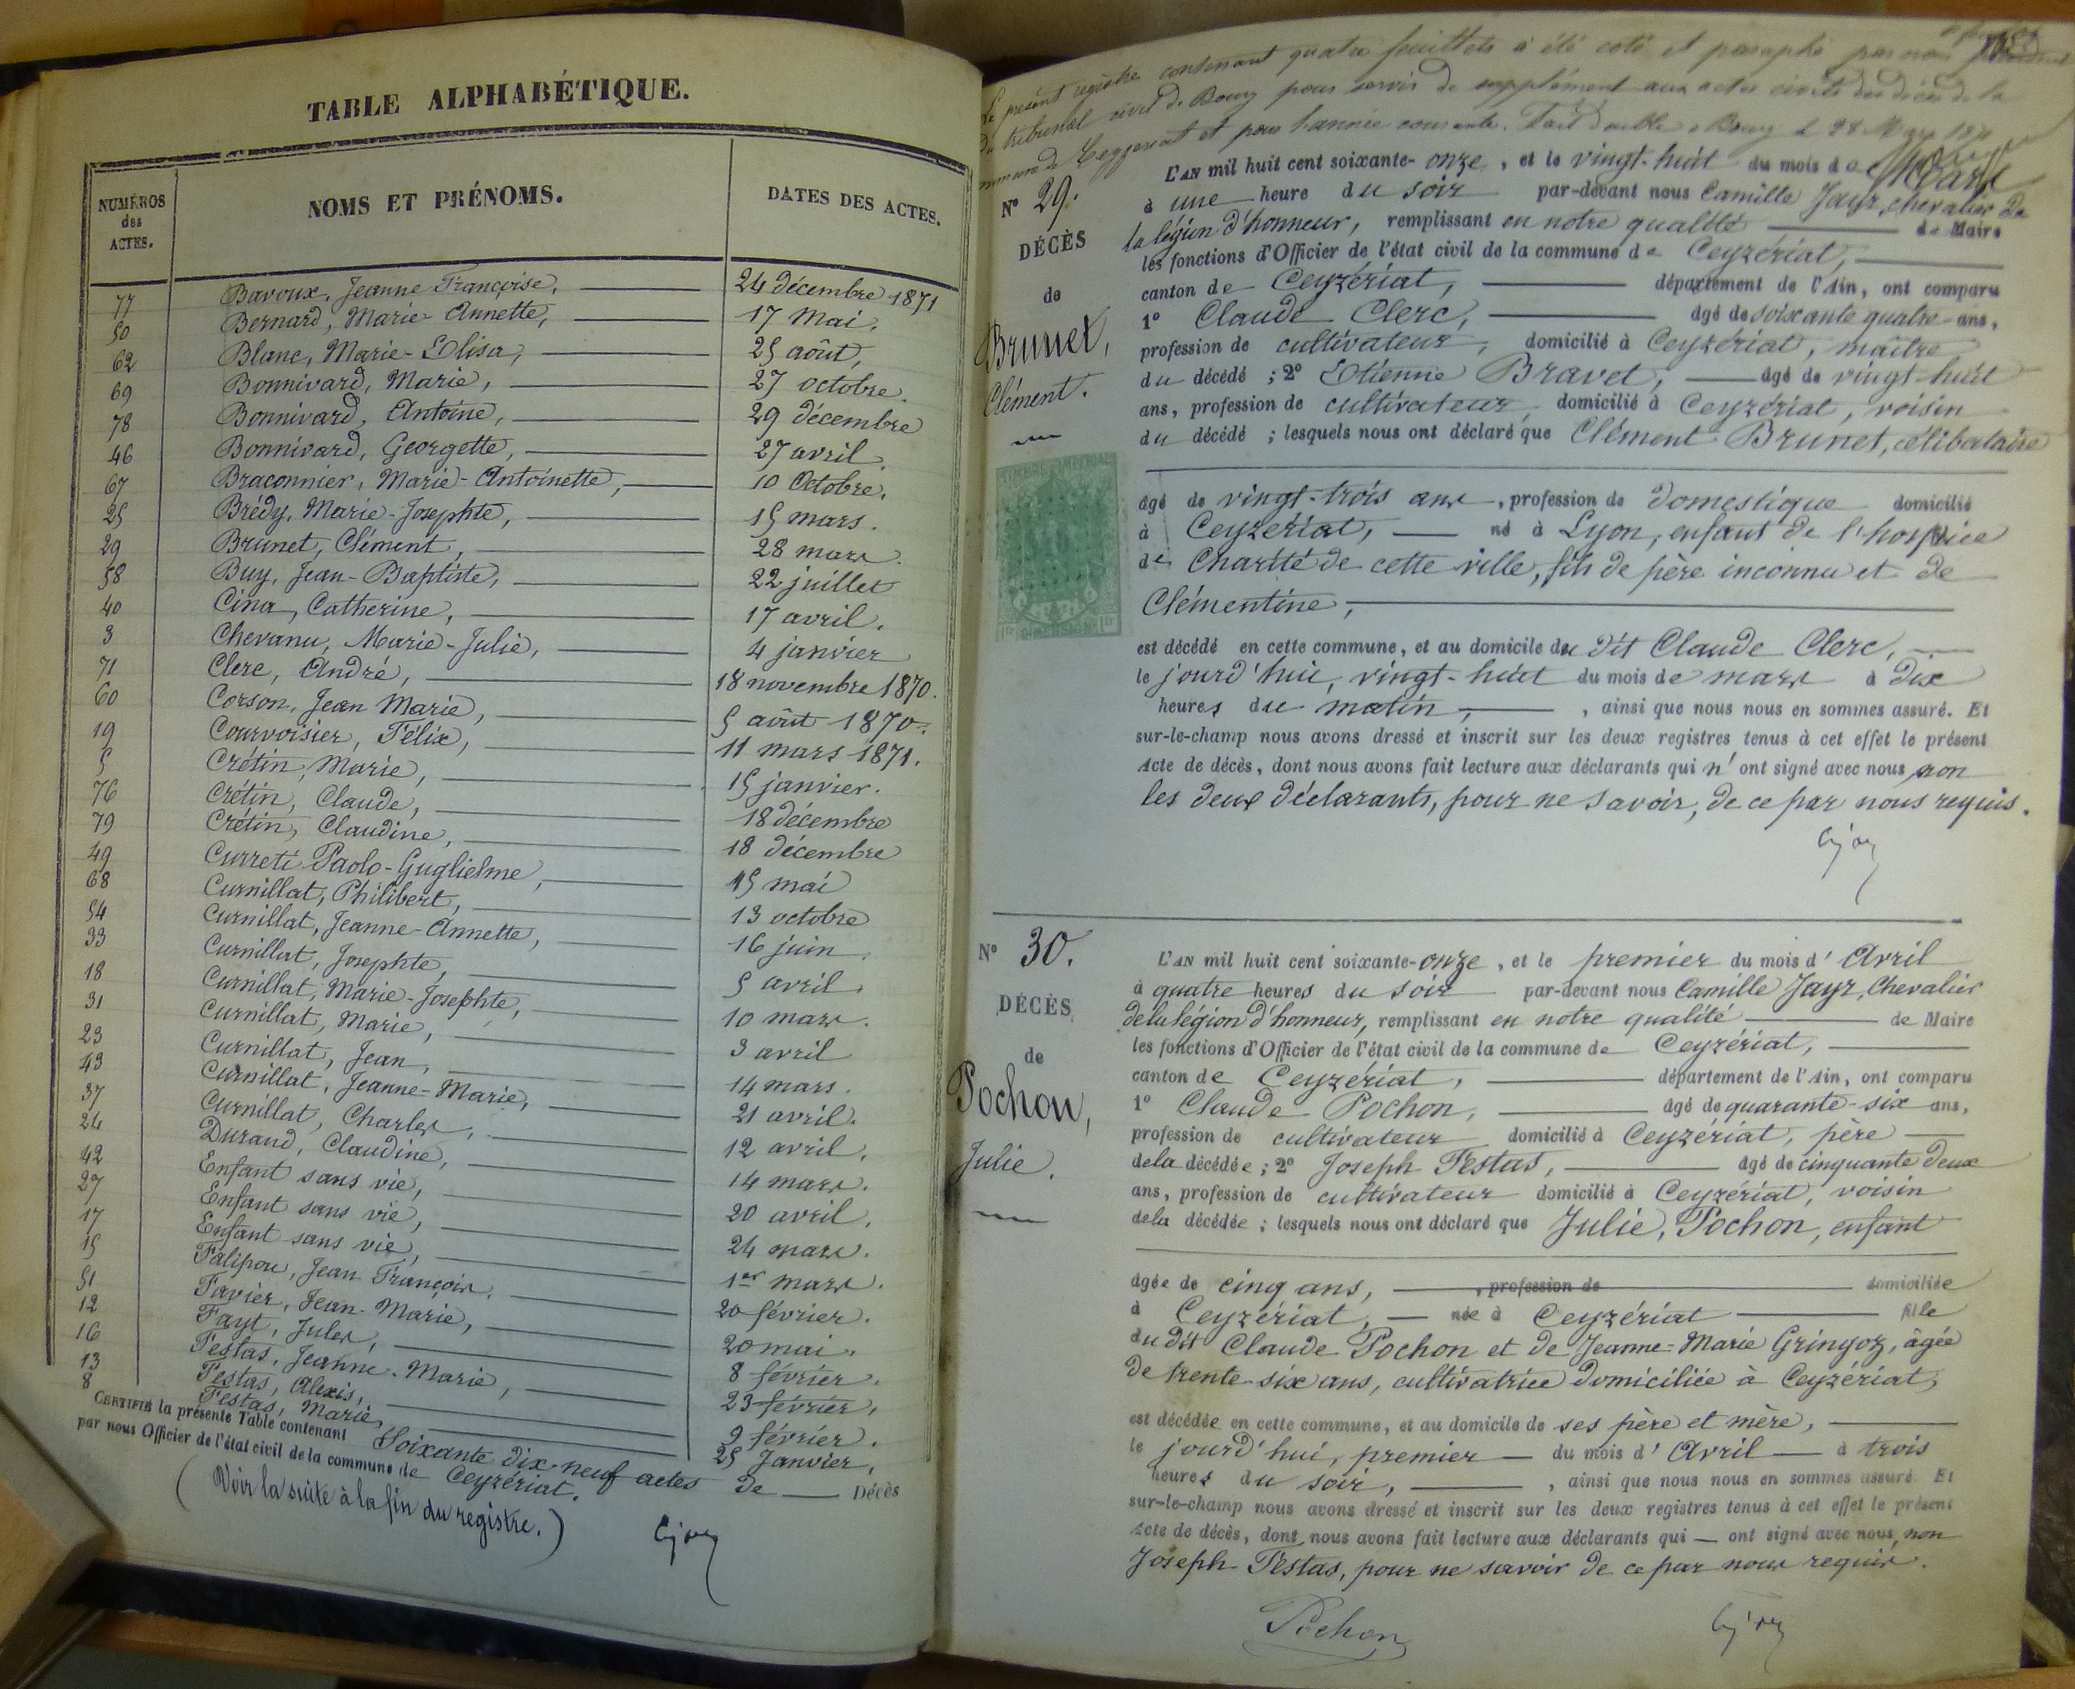 TABLE ALPHABÉTIQUE.
NUMÉROS des ACTES.
NOMS ET PRÉNOMS.
DATES DES ACTES.
77 Bavoux, Jeanne Françoise, 24 décembre 1871
50 Bernard, Marie-Annette, 17 Mai.
62 Blanc, Marie-Elisa, 25 août,
69 Bonnivard, Marie, 27 octobre.
78 Bonnivard, Antoine, 29 décembre
46 Bonnivard, Georgette, 27 avril.
67 Braconnier, Marie-Antoinette, 10 Octobre.
25 Brédy, Marie-Josephte, 15 mars.
29 Brunet, Clément, 28 mars.
58 Buy, Jean-Baptiste, 22 juillet
40 Cina, Catherine, 17 avril.
3 Chevanu, Marie-Julie, 4 janvier
71 Clerc, André, 18 novembre 1870.
60 Corson, Jean Marie, 5 août 1870.
19 Courvoisier, Félix, 11 mars 1871.
5 Crétin, Marie, 15 janvier.
76 Crétin, Claude, 18 décembre
79 Crétin, Claudine, 18 décembre
49 Curreti Paolo-Guglielme, 15 mai
68 Curnillat, Philibert, 13 octobre
54 Curnillat, Jeanne-Annette, 16 juin.
33 Curnillat, Josephte, 5 avril.
18 Curnillat, Marie-Josephte, 10 mars.
31 Curnillat, Marie, 3 avril
23 Curnillat, Jean, 14 mars.
43 Curnillat, Jeanne-Marie, 21 avril.
37 Curnillat, Charles, 12 avril.
24 Durand, Claudine, 14 mars.
42 Enfant sans vie, 20 avril.
27 Enfant sans vie, 24 mars.
17 Enfant sans vie, 1er mars.
15 Falipou, Jean François, 20 février.
51 Favier, Jean-Marie, 20 mai.
12 Fayt, Jules, 8 février.
16 Festas, Jeanne-Marie, 23 février,
13 Festas, Alexis, 9 février.
8 Festas, Marie, 25 Janvier,
CERTIFIÉ la présente Table contenant Soixante dix-neuf actes de Décès
par nous Officier de l'état civil de la commune de Ceyzériat.
(Voir la suite à la fin du registre.)
Le présent registre contenant quatre feuillets a été coté et paraphé par nous
du tribunal civil de Bourg pour servir de supplément aux actes civils des décès de la
commune de Ceyzeriat et pour l'année courante. Fait double à Bourg le 28 Mars 1871
N° 29.
DÉCÈS
de
Brunet,
Clément.
L'AN mil huit cent soixante-onze, et le vingt-huit du mois de Mars
à une heure du soir par-devant nous Camille Jayr, chevalier de
la légion d'honneur, remplissant en notre qualité de Maire
les fonctions d'Officier de l'état civil de la commune de Ceyzériat,
canton de Ceyzériat, département de l'Ain, ont comparu
1° Claude Clerc, âgé de soixante quatre ans,
profession de cultivateur, domicilié à Ceyzériat, maître
du décédé ; 2° Etienne Bravet, âgé de vingt-huit
ans, profession de cultivateur domicilié à Ceyzériat, voisin
du décédé ; lesquels nous ont déclaré que Clément Brunet, célibataire
âgé de vingt-trois ans, profession de domestique domicilié
à Ceyzériat, né à Lyon, enfant de l'hospice
de Charité de cette ville, fils de père inconnu et de
Clémentine,
est décédé en cette commune, et au domicile du dit Claude Clerc,
le jourd'hui, vingt-huit du mois de mars à dix
heures du matin, , ainsi que nous nous en sommes assuré. Et
sur-le-champ nous avons dressé et inscrit sur les deux registres tenus à cet effet le présent
Acte de décès, dont nous avons fait lecture aux déclarants qui n'ont signé avec nous non
les deux déclarants, pour ne savoir, de ce par nous requis.
N° 30.
DÉCÈS
de
Pochon,
Julie.
L'AN mil huit cent soixante-onze, et le premier du mois d'Avril
à quatre heures du soir par-devant nous Camille Jayr, Chevalier
de la légion d'honneur, remplissant en notre qualité de Maire
les fonctions d'Officier de l'état civil de la commune de Ceyzériat,
canton de Ceyzériat, département de l'Ain, ont comparu
1° Claude Pochon, âgé de quarante-six ans,
profession de cultivateur domicilié à Ceyzériat, père
de la décédée ; 2° Joseph Festas, âgé de cinquante deux
ans, profession de cultivateur domicilié à Ceyzériat, voisin
de la décédée ; lesquels nous ont déclaré que Julie, Pochon, enfant
âgée de cinq ans, , profession de domiciliée
à Ceyzériat, née à Ceyzériat fille
du dit Claude Pochon et de Jeanne-Marie Gringoz, âgée
de trente-six ans, cultivatrice domiciliée à Ceyzériat,
est décédée en cette commune, et au domicile de ses père et mère,
le jourd'hui, premier du mois d'Avril à trois
heures du soir, , ainsi que nous nous en sommes assuré. Et
sur-le-champ nous avons dressé et inscrit sur les deux registres tenus à cet effet le présent
Acte de décès, dont nous avons fait lecture aux déclarants qui ont signé avec nous, non
Joseph Festas, pour ne savoir de ce par nous requis.
Pochon